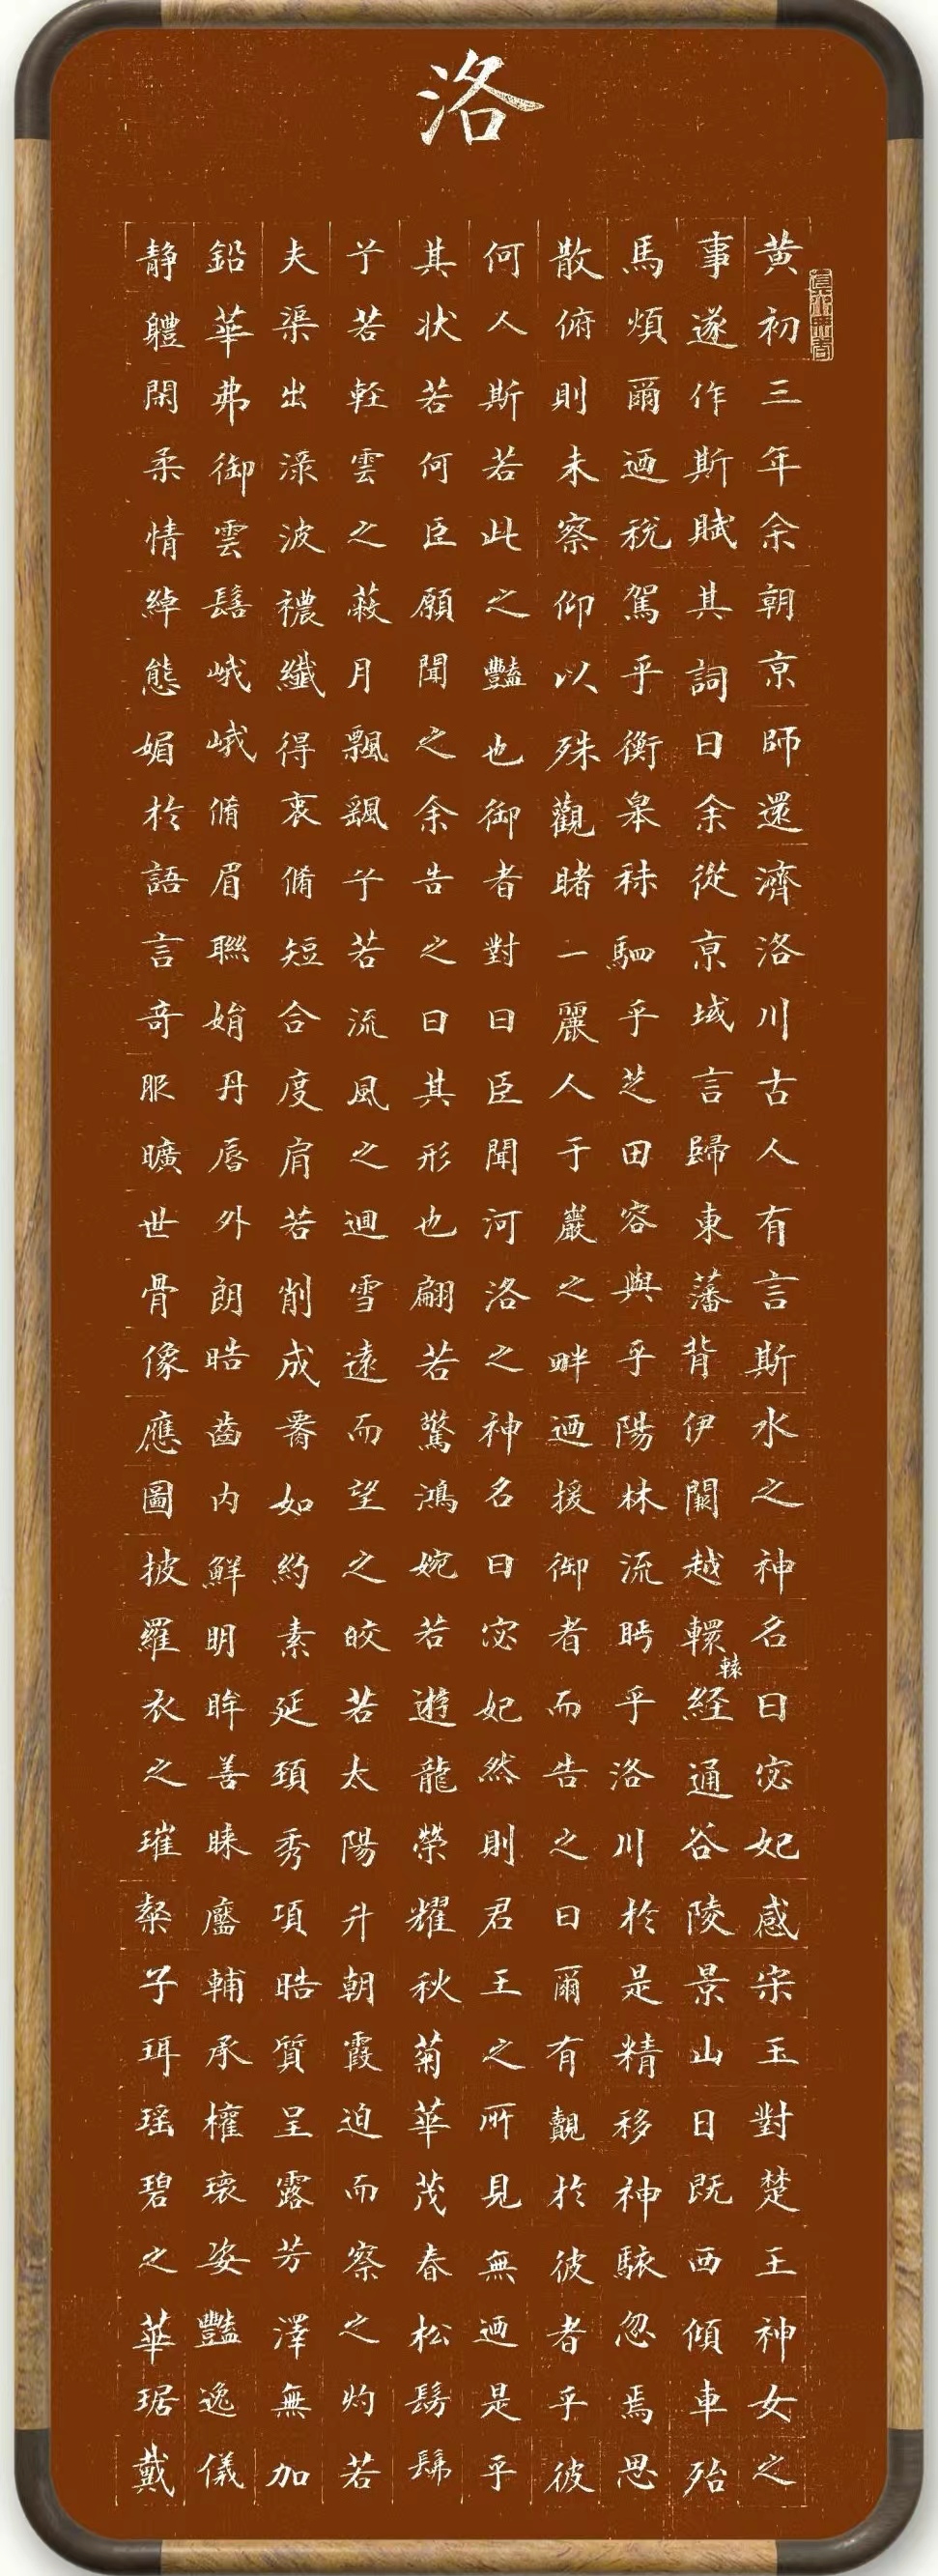 洛
黄初三年余朝京師還濟洛川古人有言斯水之神名曰宓妃感宋玉對楚王神女之
事遂作斯賦其詞曰余從京域言歸東藩背伊闕越轘轅経通谷陵景山日既西傾車殆
馬煩爾迺稅駕乎衡皋秣駟乎芝田容與乎陽林流眄乎洛川於是精移神駭忽焉思
散俯則未察仰以殊觀睹一麗人于巖之畔迺援御者而告之曰爾有覿於彼者乎彼
何人斯若此之豔也御者對曰臣聞河洛之神名曰宓妃然則君王之所見無迺是乎
其状若何臣願聞之余告之曰其形也翩若驚鴻婉若遊龍榮耀秋菊華茂春松髣髴
兮若軽雲之蔽月飄颻兮若流風之迴雪遠而望之皎若太陽升朝霞迫而察之灼若
夫渠出渌波襛纖得衷脩短合度肩若削成署如約素延頸秀項晧質呈露芳澤無加
鉛華弗御雲髻峨峨脩眉聯娟丹唇外朗晧齒内鮮明眸善睞靨輔承權瓌姿豔逸儀
静軆閑柔情綽態媚於語言奇服曠世骨像應圖披羅衣之璀粲子珥瑶碧之華琚戴